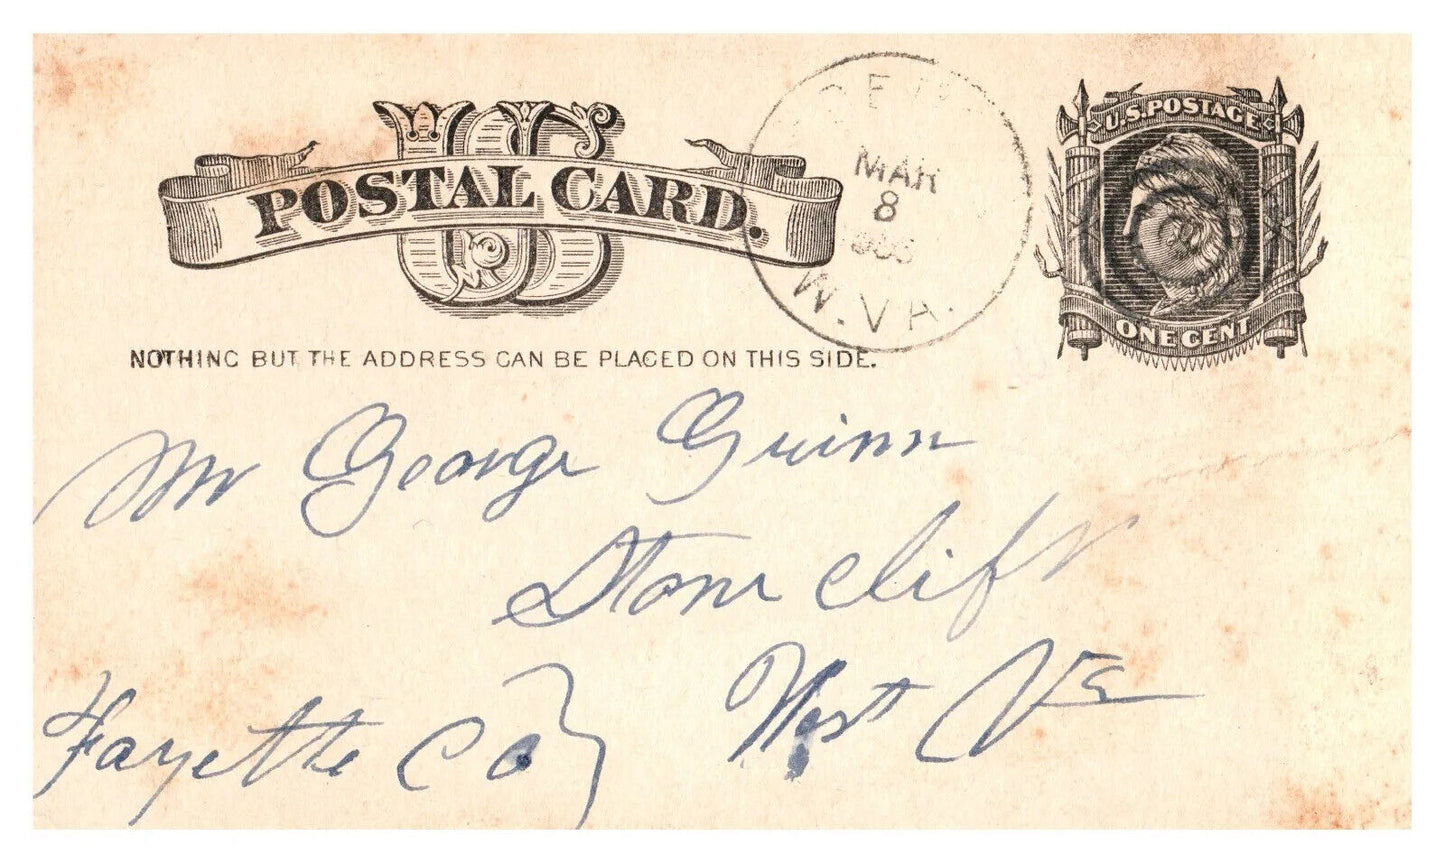 US
POSTAL CARD.
MAR
8
W.VA.
U.S. POSTAGE
ONE CENT
NOTHING BUT THE ADDRESS CAN BE PLACED ON THIS SIDE.
Mr George Guinn
Stone Cliff
Fayette Co West Va